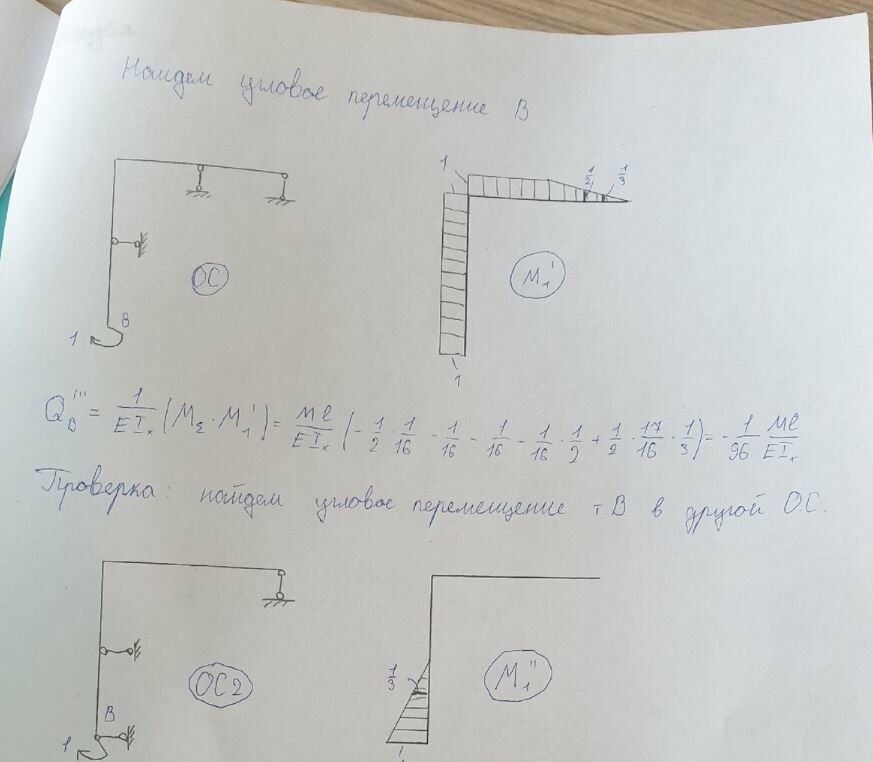 Найдем угловое перемещение B
1
1/2
1/3
1
ОС
M₁'
B
1
1
Q_B''' = 1/(EIₓ) (M_Σ · M₁') = Ml/(EIₓ) (-1/2 · 1/16 - 1/16 - 1/16 - 1/16 · 1/2 + 1/2 · 17/16 · 1/3) = -1/96 Ml/(EIₓ)
Проверка: найдем угловое перемещение т.B в другой О.С.
1/3
ОС2
M₁''
B
1